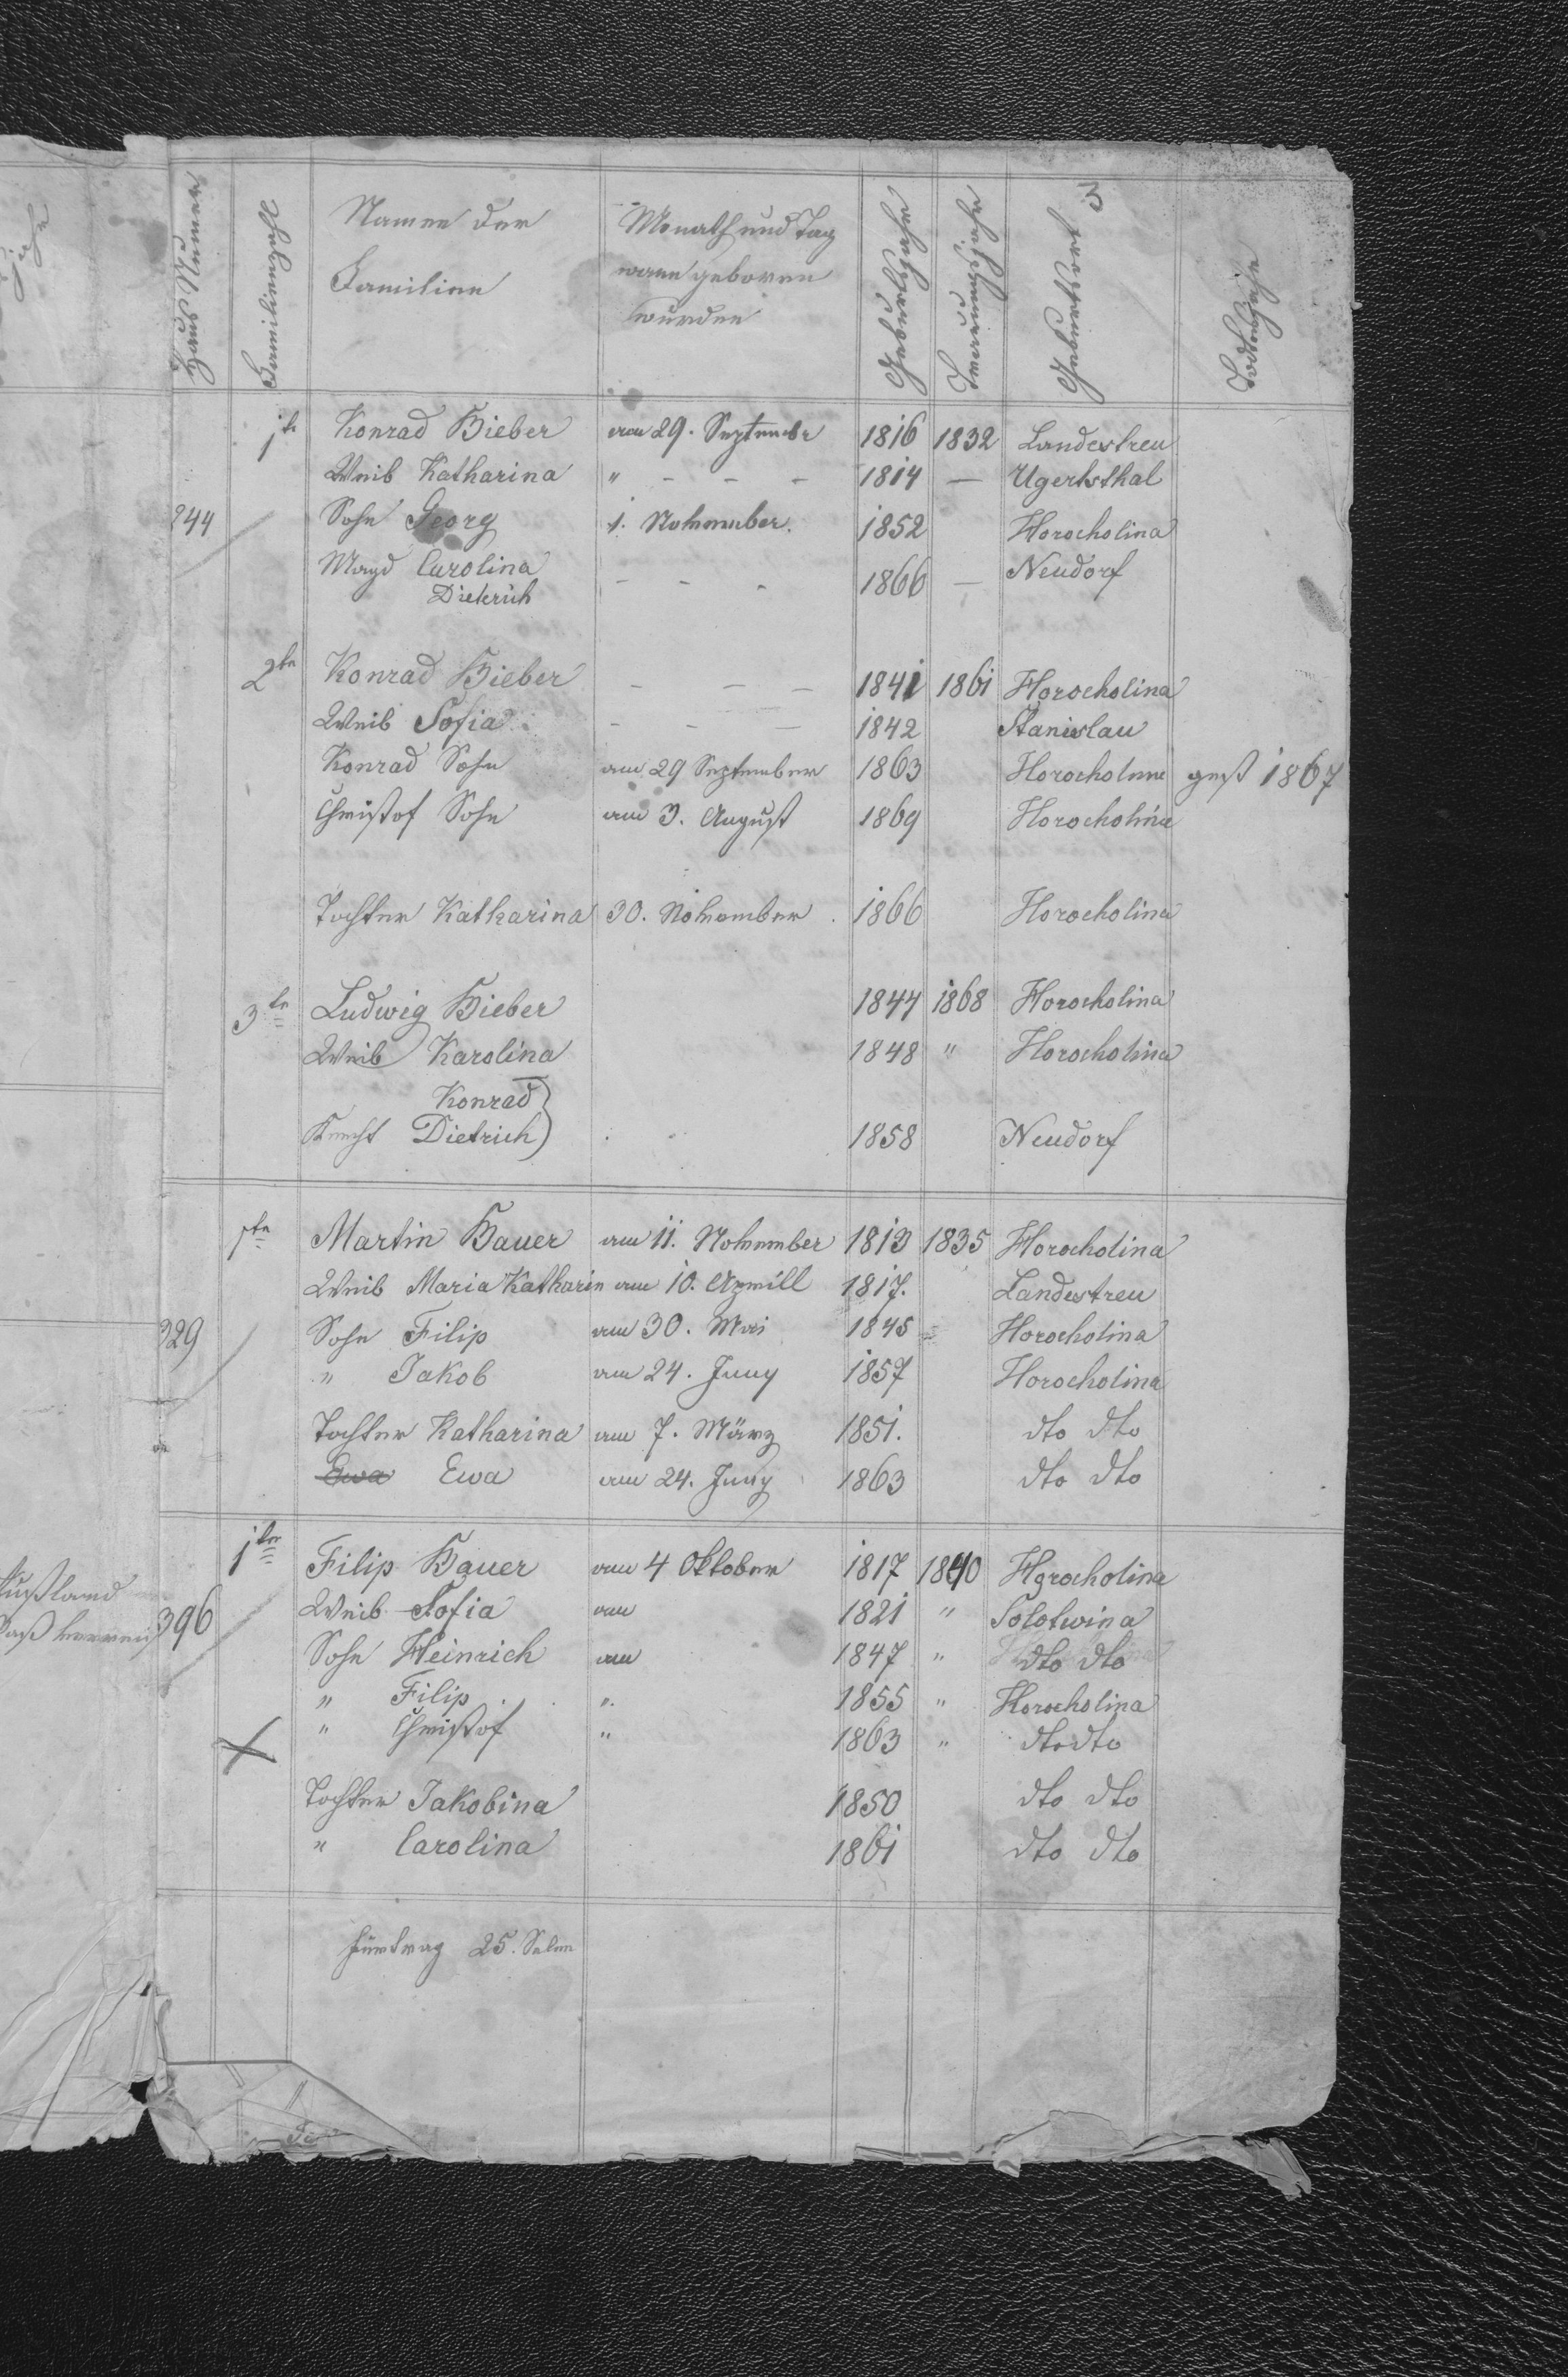 3
Haus Numer
Familienzahl
Namen der
Familien
Monath und Tag
wann geboren
wurden
Geburtsjahr
Trauungsjahr
Geburtsort
1te Konrad Bieber am 29. Septembr 1816 1832 Landestreu
Weib Katharina " - - - 1814 — Ugertsthal
244 Sohn Georg 1. November. 1852 Horocholina
Magd Carolina - - - 1866 — Neudorf
Dietrich
2te Konrad Bieber - - - 1841 1861 Horocholina
Weib Sofia - - - 1842 Stanislau
Konrad Sohn am 29 September 1863 Horocholina gest 1867
Christof Sohn am 3. August 1869 Horocholina
Tochter Katharina 30. November 1866 Horocholina
3te Ludwig Bieber 1844 1868 Horocholina
Weib Karolina 1848 " Horocholina
Konrad
Knecht Dietrich 1858 Neudorf
1te Martin Bauer am 11. November 1813 1835 Horocholina
Weib Maria Katharin am 10. Aprill 1817. Landestreu
329 Sohn Filip am 30. Mai 1845 Horocholina
" Jakob am 24. Juny 1857 Horocholina
Tochter Katharina am 7. März 1851. dto dto
Ewa Ewa am 24. Juny 1863 dto dto
1te Filip Bauer am 4 Oktober 1817 1840 Horocholina
396 Weib Sofia am 1821 " Solotwina
Sohn Heinrich am 1847 " dto dto
" Filip " 1855 " Horocholina
" Christof " 1863 " dto dto
Tochter Jakobina 1850 dto dto
" Carolina 1861 dto dto
Fürtrag 25. Selen